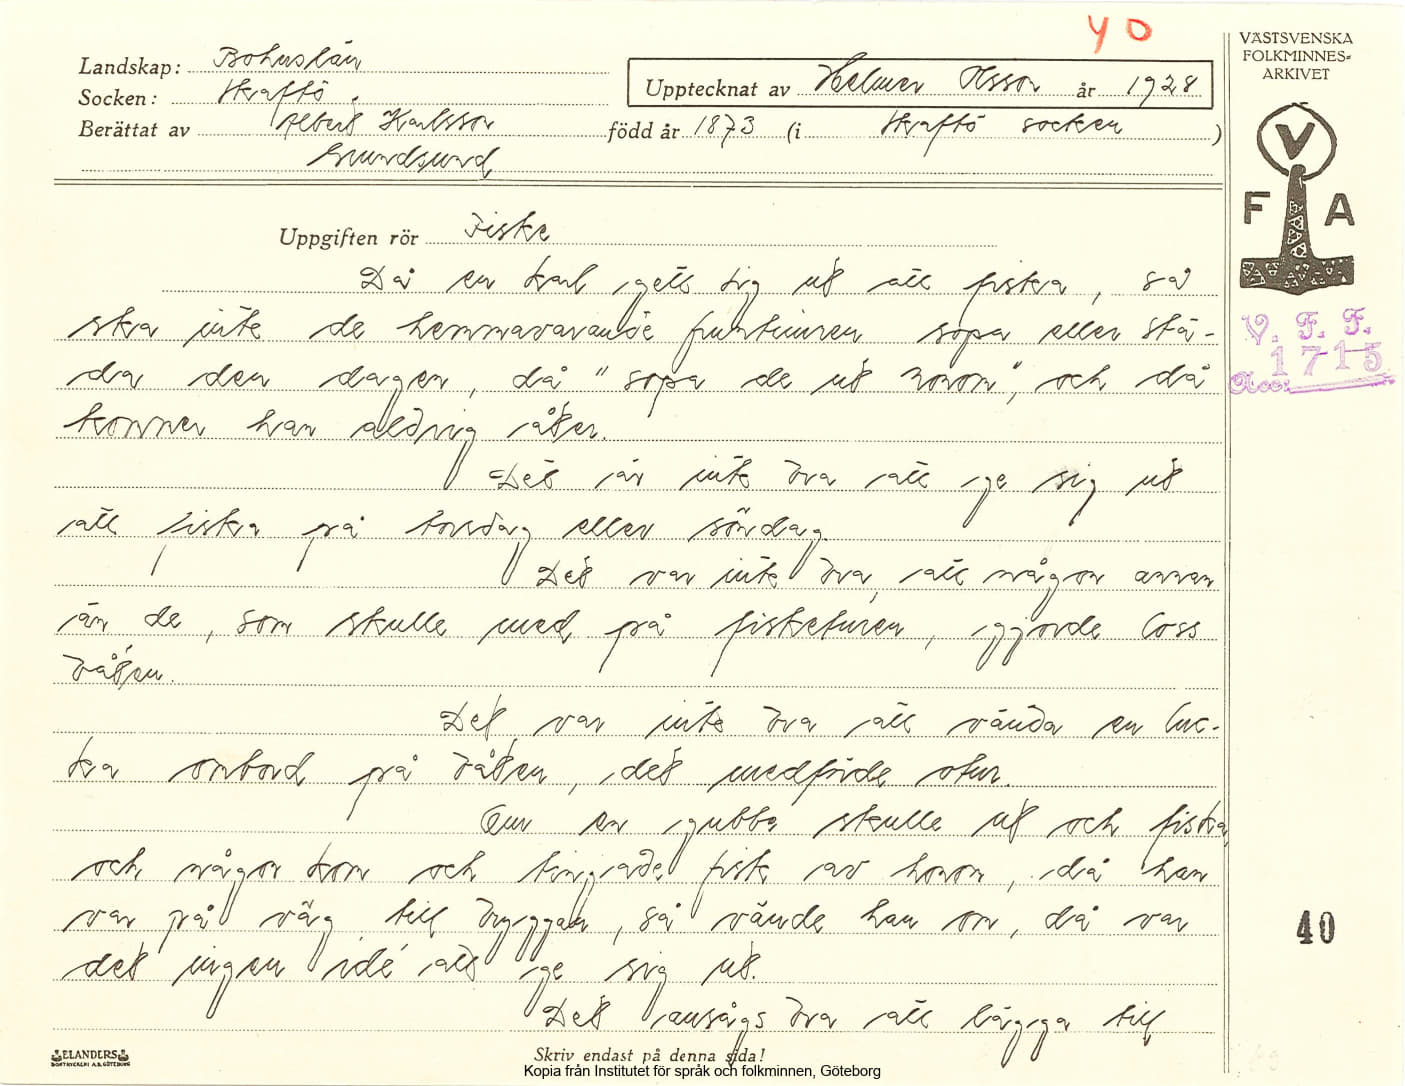 40
Landskap: Bohuslän
Socken: Skaftö.
Upptecknat av Helmer Olsson år 1928
Berättat av Albert Karlsson född år 1873 (i Skaftö socken)
Grundsund
VÄSTSVENSKA
FOLKMINNES=
ARKIVET
V
F A
V. F. F.
Acc: 1715
Uppgiften rör Fiske
Då en karl gett sig ut att fiska, så
ska inte de hemmavarande fruntimren sopa eller stä-
da den dagen, då "sopa de ut honom", och då
kommer han aldrig åter.
Det är inte bra att ge sig ut
att fiska på torsdag eller söndag.
Det var inte bra, att någon annan
än de, som skulle med på fisketuren, gjorde loss
båten.
Det var inte bra att vända en luc-
ka ombord på båten, det medförde otur.
Om en gubbe skulle ut och fiska,
och någon kom och tingade fisk av honom, då han
var på väg till bryggan, så vände han om, då var
det ingen idé att ge sig ut.
Det ansågs bra att lägga till
40
ELANDERS
BOKTRYCKERI A.B. GÖTEBORG
Skriv endast på denna sida!
Kopia från Institutet för språk och folkminnen, Göteborg